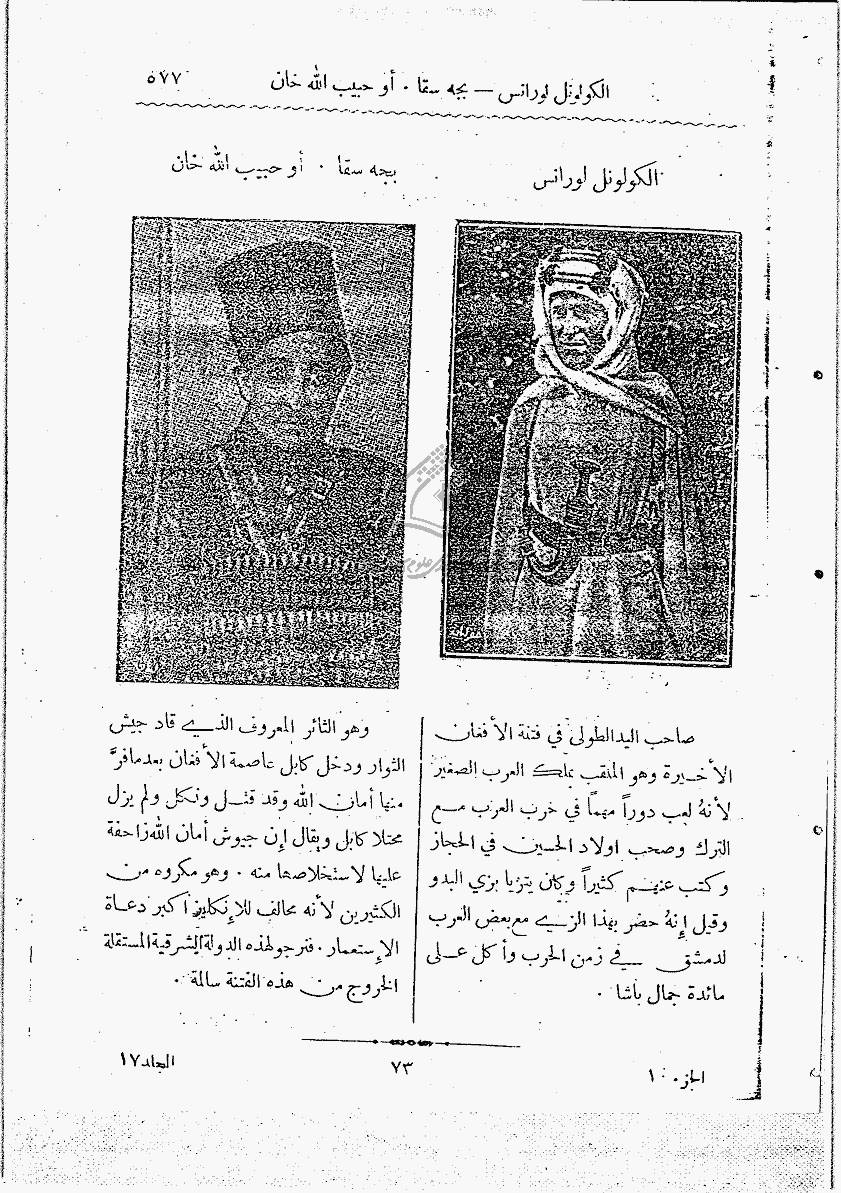 الكولونل لورانس — بجه سقا . أو حبيب الله خان ٥٧٧
الكولونل لورانس
بجه سقا . أو حبيب الله خان
صاحب اليد الطولى في فتنة الأفغان
الأخيرة وهو الملقب بملك العرب الصغير
لأنهُ لعب دوراً مهماً في حرب العرب مع
الترك وصحب اولاد الحسين في الحجاز
وكتب عنهم كثيراً وكان يتزيا بزي البدو
وقيل إنهُ حضر بهذا الزي مع بعض العرب
لدمشق في زمن الحرب وأكل على
مائدة جمال باشا .
وهو الثائر المعروف الذي قاد جيش
الثوار ودخل كابل عاصمة الأفغان بعد ما فرَّ
منها أمان الله وقد قتل ونكل ولم يزل
محتلا كابل ويقال إن جيوش أمان الله زاحفة
عليها لاستخلاصها منه . وهو مكروه من
الكثيرين لأنه محالف للإنكليز أكبر دعاة
الإستعمار . فنرجو لهذه الدولة الشرقية المستقلة
الخروج من هذه الفتنة سالمة .
الجزء ١٠ ٧٣ المجلد ١٧